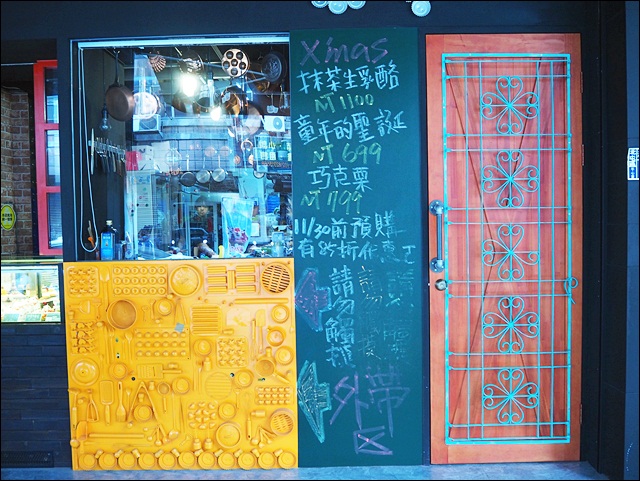 X'mas
抹茶生乳酪
NT 1100
童年的聖誕
NT 699
巧克栗
NT 799
11/30前預購
有85折优惠
請勿觸摸
外帶
区